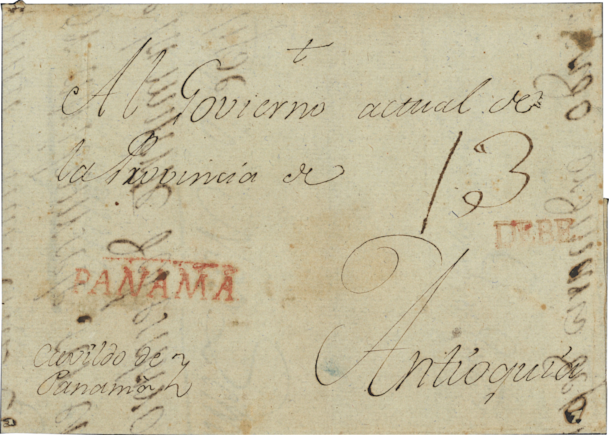 †
Al Govierno actual de
la Provincia de
13
DEBE
PANAMA
Antioquia
Cavildo de
Panamá